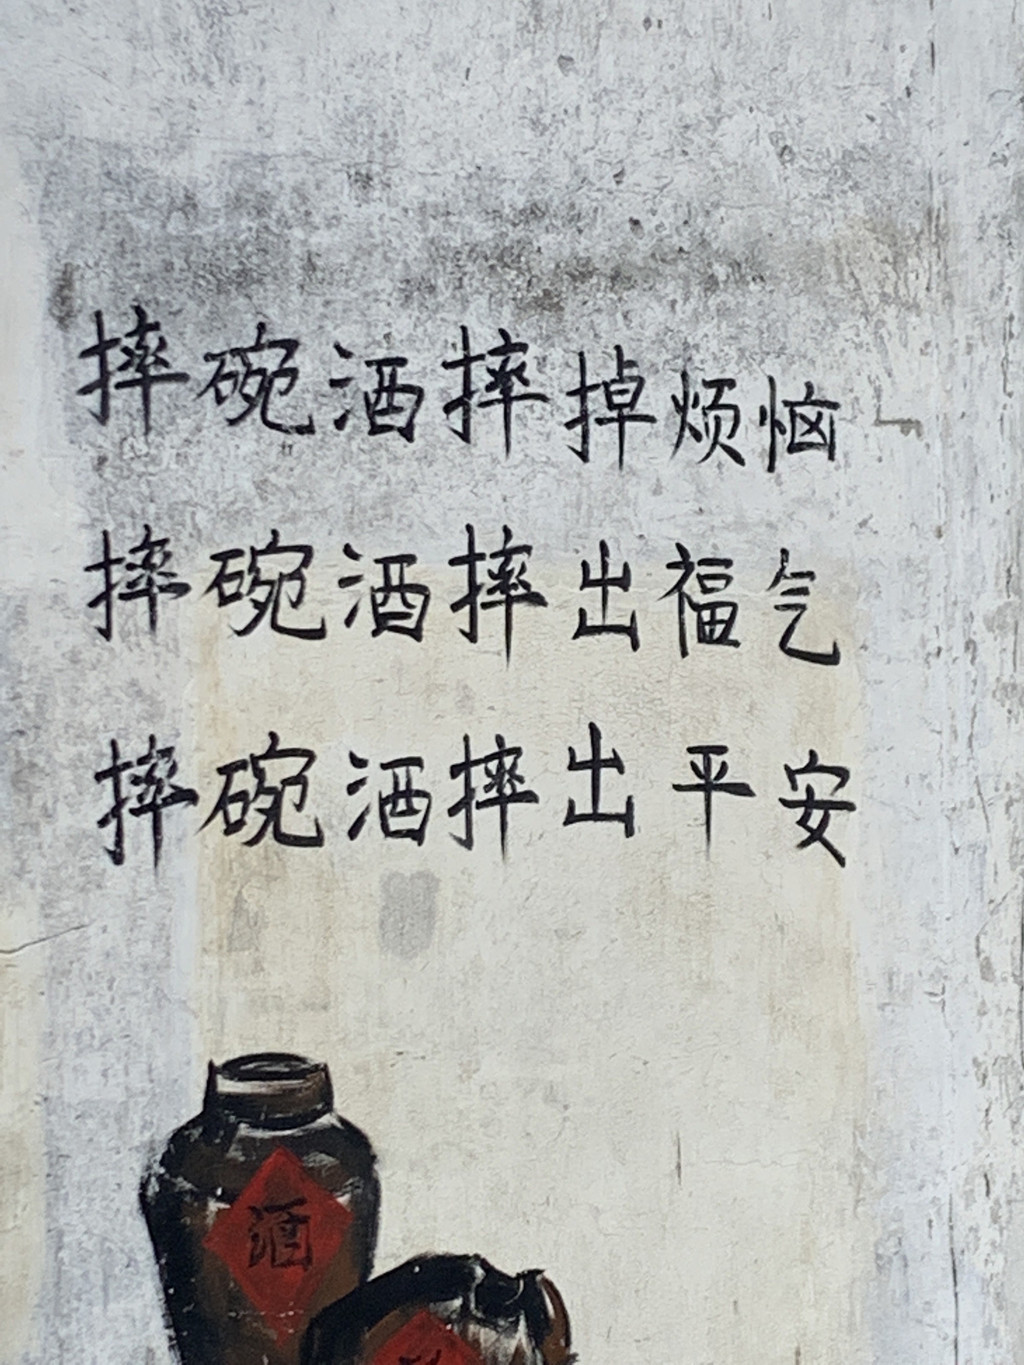 摔碗酒摔掉烦恼
摔碗酒摔出福气
摔碗酒摔出平安
酒